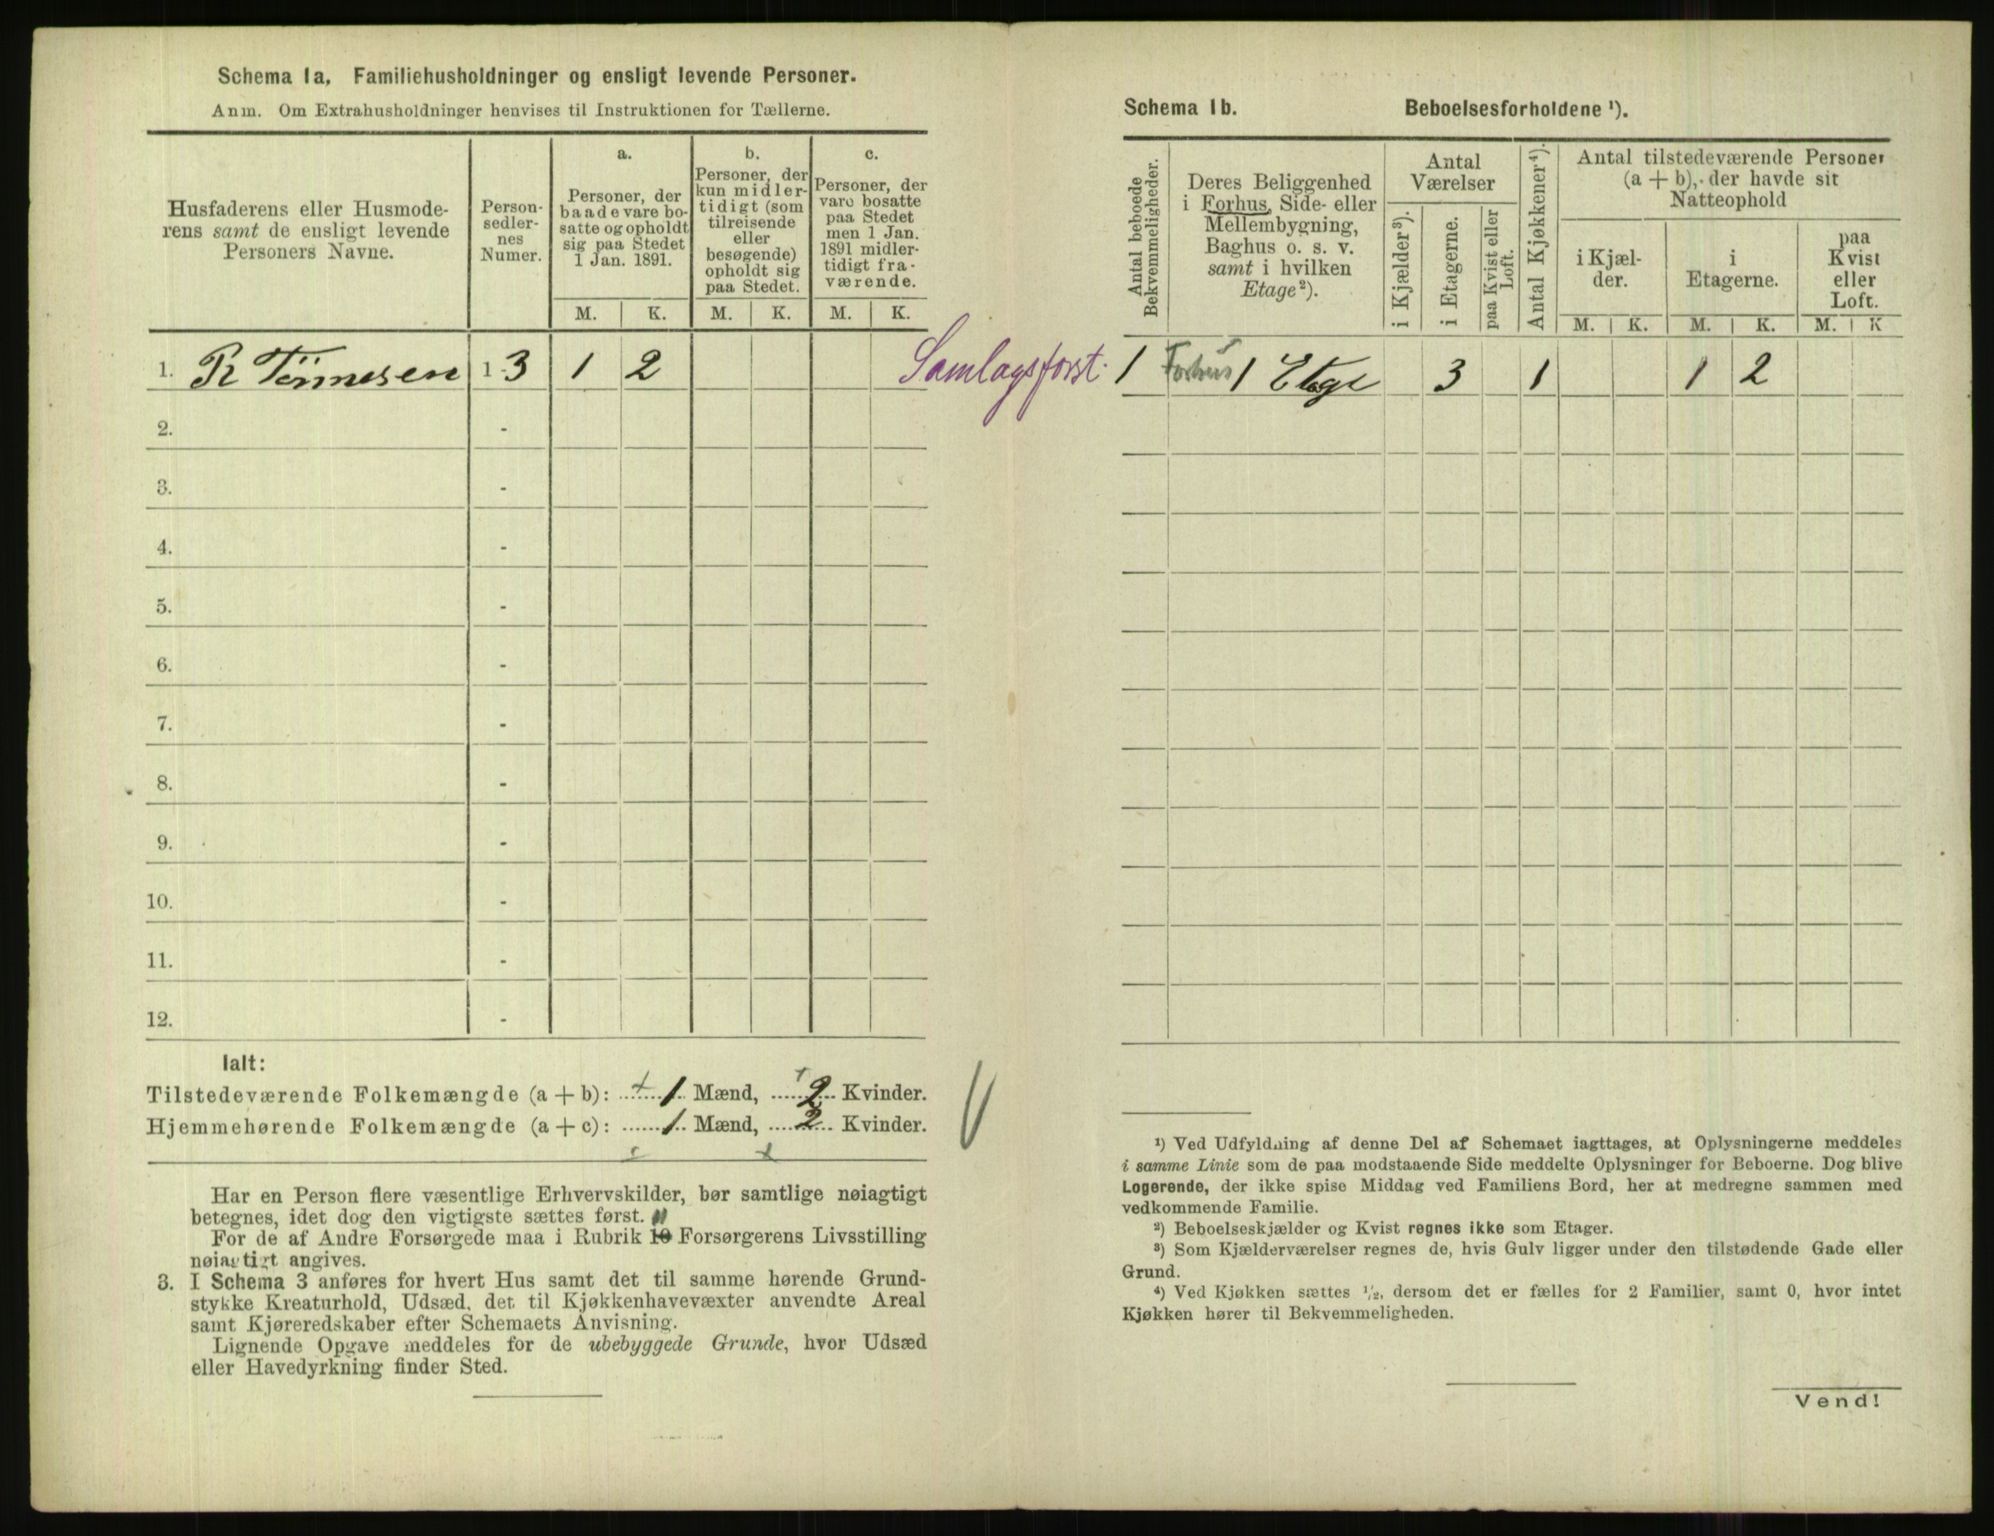 Schema 1a. Familiehusholdninger og ensligt levende Personer.
Anm. Om Extrahusholdninger henvises til Instruktionen for Tællerne.
Husfaderens eller Husmode-
rens samt de ensligt levende
Personers Navne.
Person-
sedler-
nes
Numer.
a.
Personer, der
baade vare bo-
satte og opholdt
sig paa Stedet
1 Jan. 1891.
b.
Personer, der
kun midler-
tidigt (som
tilreisende
eller
besøgende)
opholdt sig
paa Stedet.
c.
Personer, der
vare bosatte
paa Stedet
men 1 Jan.
1891 midler-
tidigt fra-
værende.
M. K. M. K. M. K.
1. R Tönnesen 1-3 1 2
Samlagsforst.
2. -
3. -
4. -
5. -
6. -
7. -
8. -
9. -
10. -
11. -
12. -
Ialt:
Tilstedeværende Folkemængde (a + b): 1 Mænd, 2 Kvinder.
Hjemmehørende Folkemængde (a + c): 1 Mænd, 2 Kvinder.
Har en Person flere væsentlige Erhvervskilder, bør samtlige nøiagtigt
betegnes, idet dog den vigtigste sættes først.
For de af Andre Forsørgede maa i Rubrik 10 Forsørgerens Livsstilling
nøiagtigt angives.
3. I Schema 3 anføres for hvert Hus samt det til samme hørende Grund-
stykke Kreaturhold, Udsæd, det til Kjøkkenhavevæxter anvendte Areal
samt Kjøreredskaber efter Schemaets Anvisning.
Lignende Opgave meddeles for de ubebyggede Grunde, hvor Udsæd
eller Havedyrkning finder Sted.
Schema 1b. Beboelsesforholdene ¹).
Antal beboede
Bekvemmeligheder.
Deres Beliggenhed
i Forhus, Side- eller
Mellembygning,
Baghus o. s. v.
samt i hvilken
Etage²).
Antal
Værelser
i Kjælder³).
i Etagerne.
paa Kvist eller
Loft.
Antal Kjøkkener⁴).
Antal tilstedeværende Personer
(a + b), der havde sit
Natteophold
i Kjæl-
der.
i
Etagerne.
paa
Kvist
eller
Loft.
M. K. M. K. M. K
1 Forhus 1 Etage 3 1 1 2
¹) Ved Udfyldning af denne Del af Schemaet iagttages, at Oplysningerne meddeles
i samme Linie som de paa modstaaende Side meddelte Oplysninger for Beboerne. Dog blive
Logerende, der ikke spise Middag ved Familiens Bord, her at medregne sammen med
vedkommende Familie.
²) Beboelseskjælder og Kvist regnes ikke som Etager.
³) Som Kjælderværelser regnes de, hvis Gulv ligger under den tilstødende Gade eller
Grund.
⁴) Ved Kjøkken sættes ½, dersom det er fælles for 2 Familier, samt 0, hvor intet
Kjøkken hører til Bekvemmeligheden.
Vend!